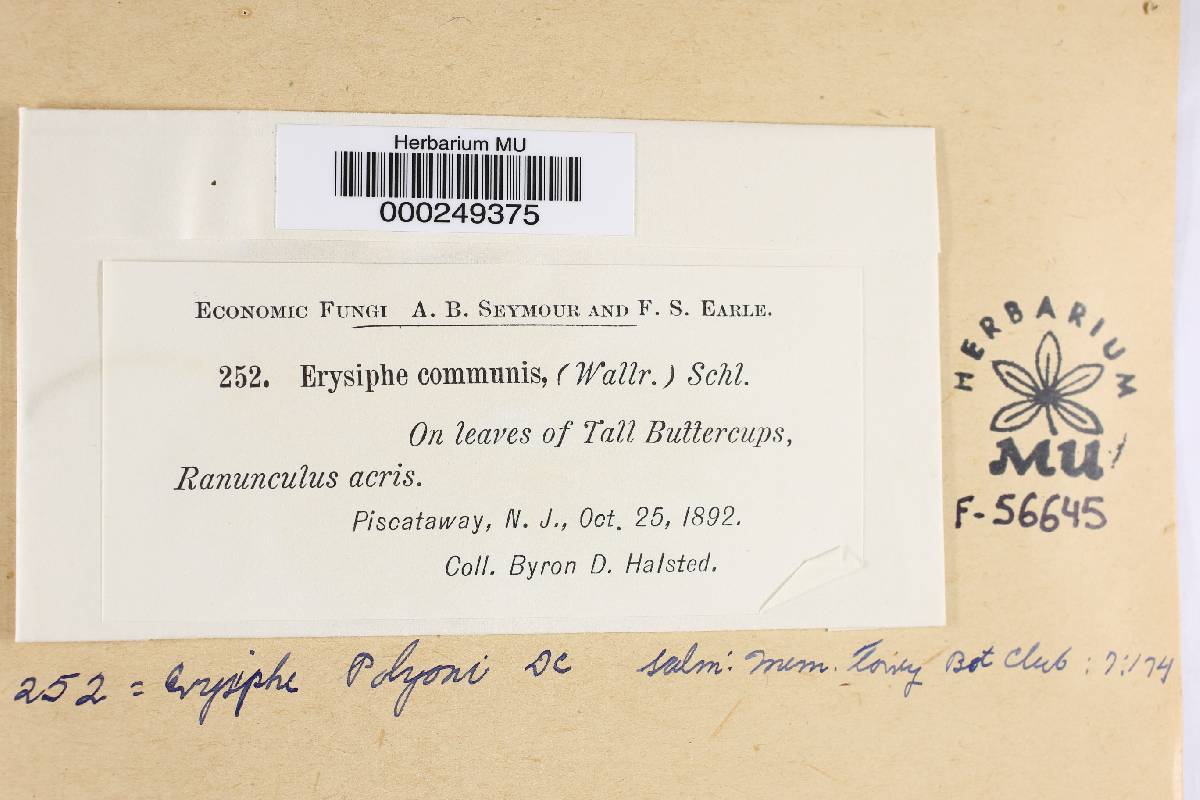 Herbarium MU
000249375
ECONOMIC FUNGI A. B. SEYMOUR AND F. S. EARLE.
252. Erysiphe communis, (Wallr.) Schl.
On leaves of Tall Buttercups,
Ranunculus acris.
Piscataway, N. J., Oct. 25, 1892.
Coll. Byron D. Halsted.
HERBARIUM
MU
F-56645
252 = Erysiphe Polyoni DC Salm: Mem. Torrey Bot Club: 9:174